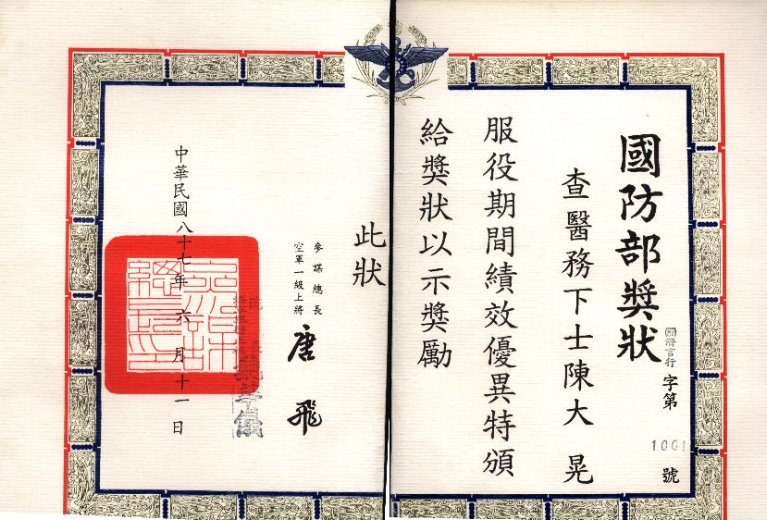 國防部獎狀
字第1001號
查醫務下士陳大晃
服役期間績效優異特頒
給獎狀以示獎勵
此狀
參謀總長
空軍一級上將
唐飛
中華民國八十七年六月十一日